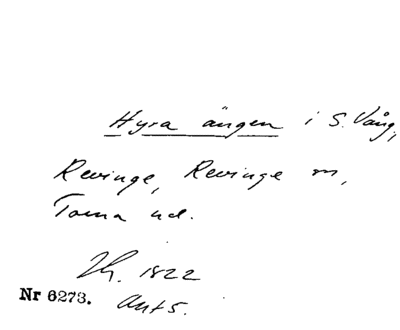 Hyra ängen i S. Vång,
Revinge, Revinge sn,
Torna hd.
Th. 1822
Nr 6273. Ant 5.